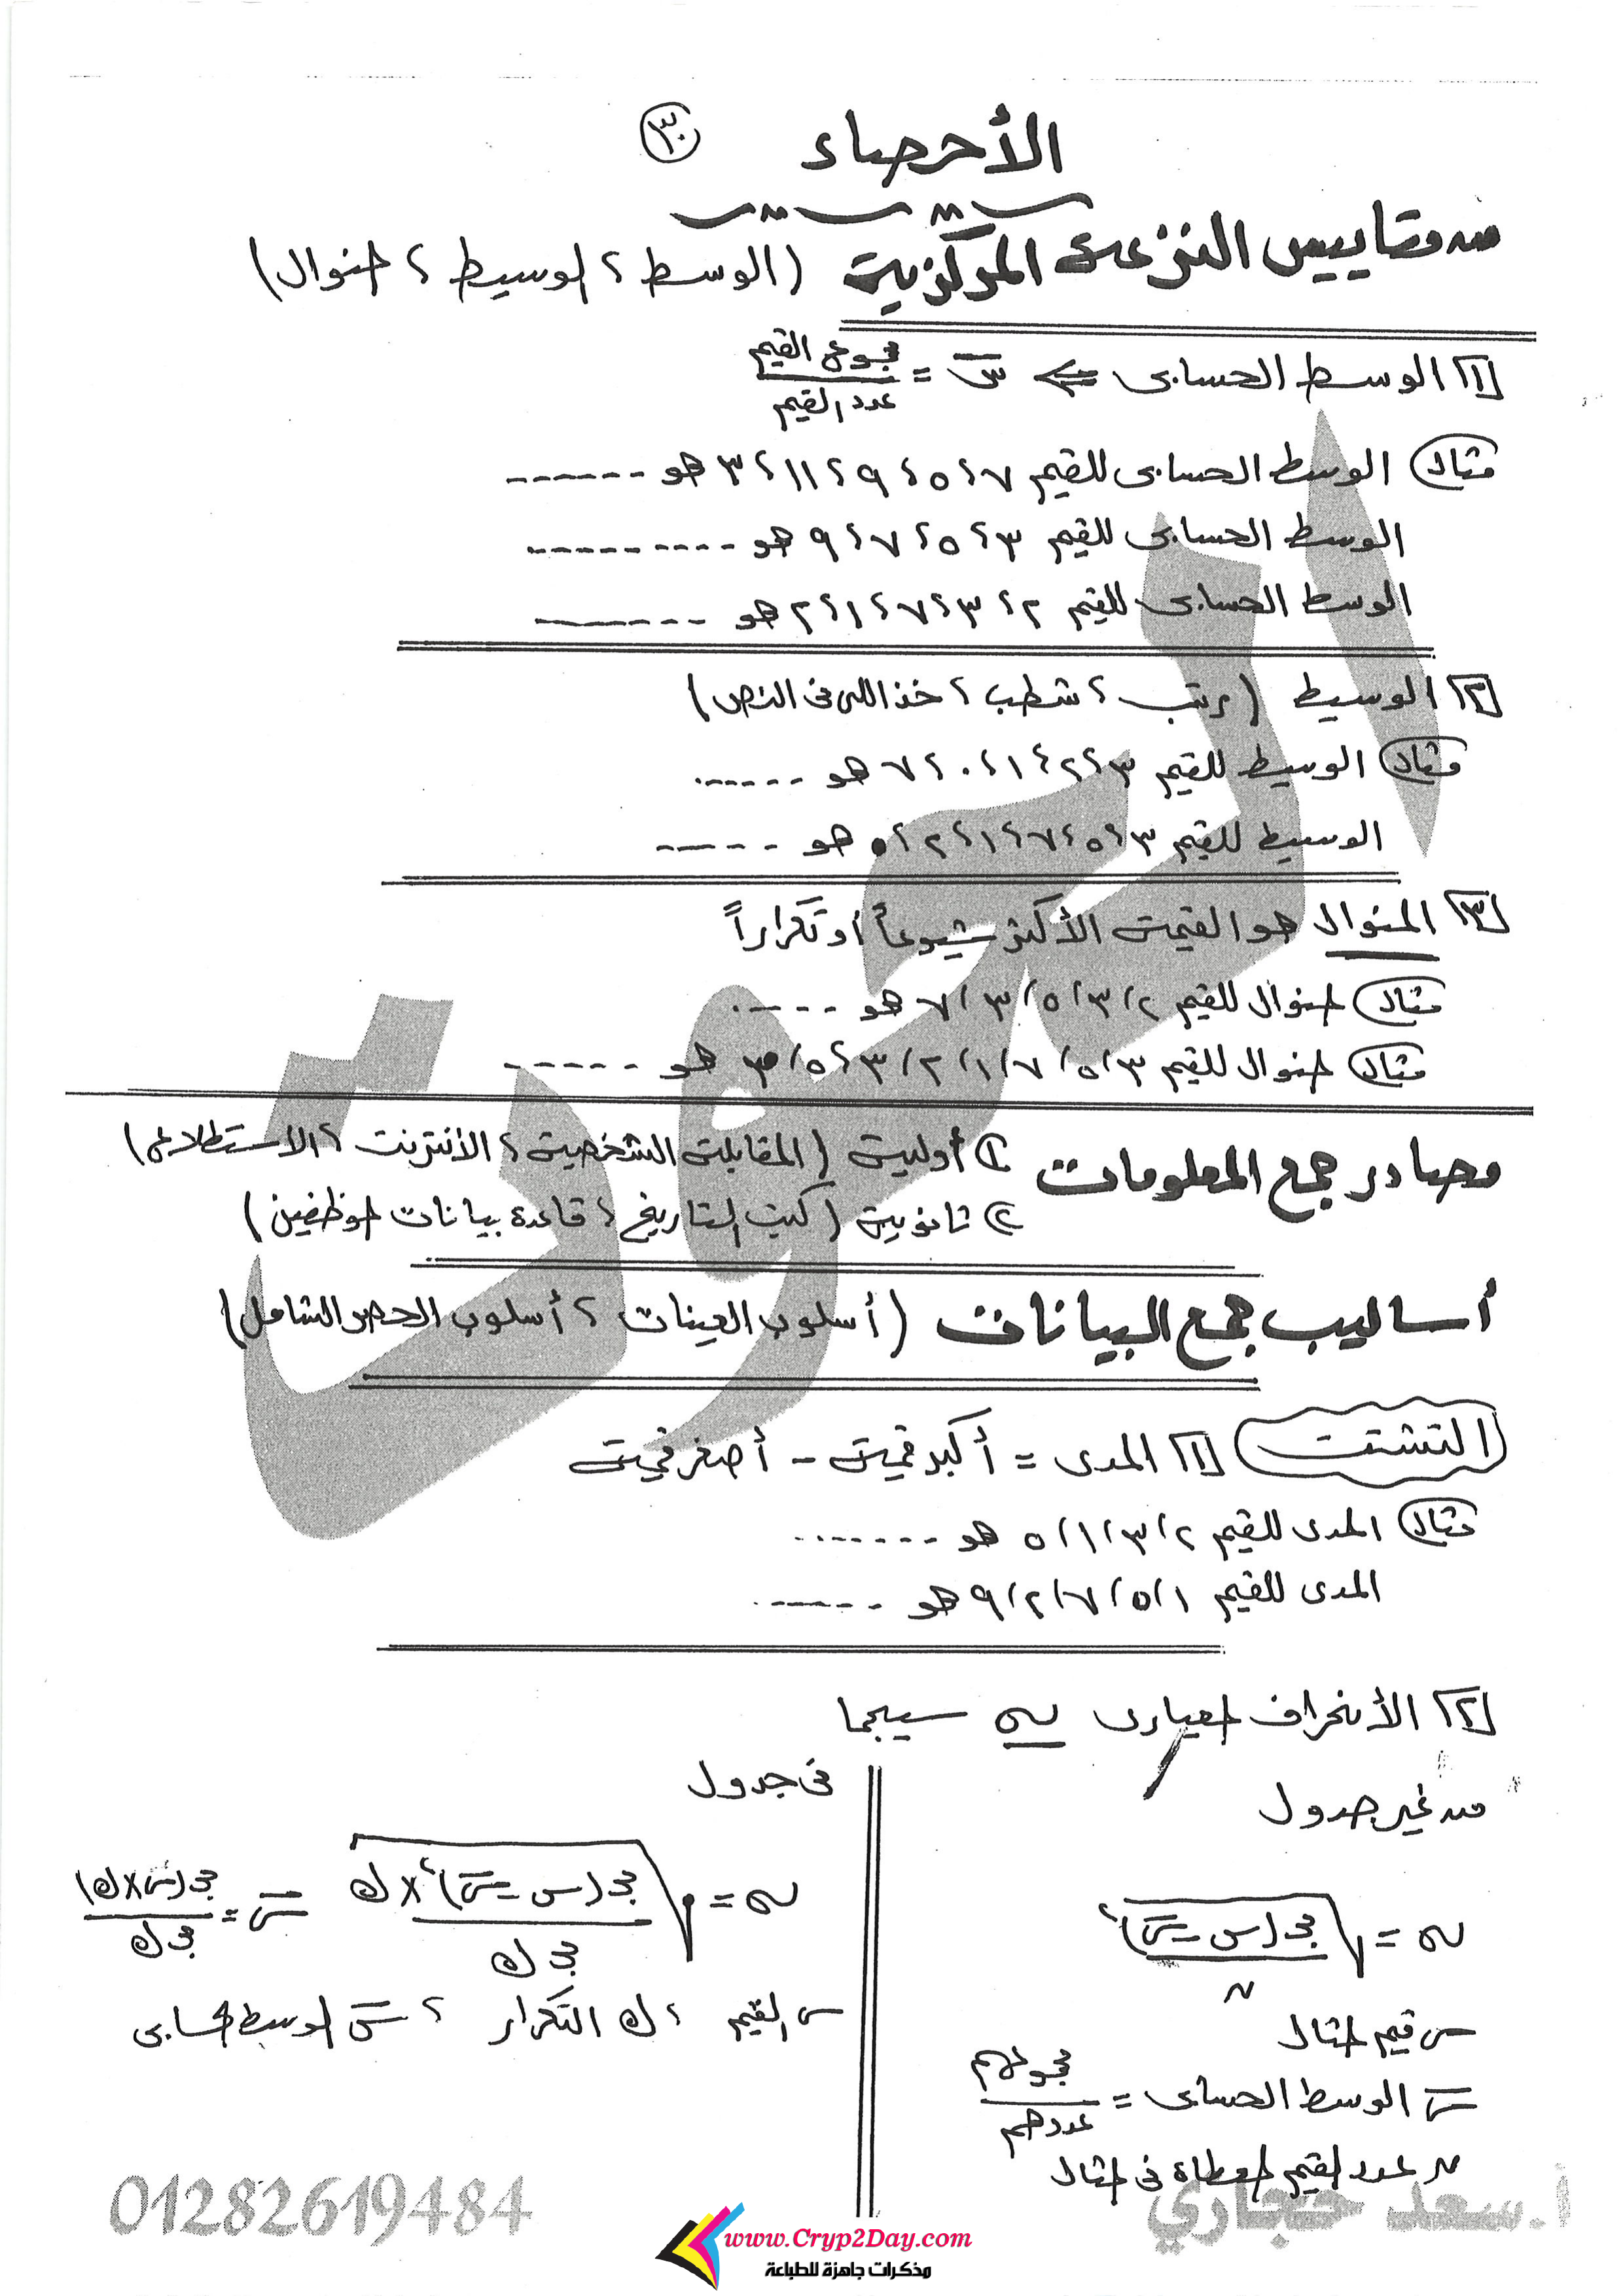 الأحصاء ٣٠
مقاييس النزعة المركزية (الوسط ، الوسيط ، المنوال)
[١] الوسط الحسابى ⇐ س̄ = مجموع القيم / عدد القيم
مثال الوسط الحسابى للقيم ٧ ، ٥ ، ٩ ، ١١ ، ٣ هو ------
الوسط الحسابى للقيم ٣ ، ٥ ، ٧ ، ٩ هو ---------
الوسط الحسابى للقيم ٢ ، ٣ ، ٧ ، ١ ، ٢ هو -------
[٢] الوسيط (رتب ، شطب ، خذ اللى فى النص)
مثال الوسيط للقيم ٣ ، ٢ ، ١ ، ٠ ، ٧ هو ------
الوسيط للقيم ٣ ، ٥ ، ٧ ، ١ ، ٢ ، ٥ هو -----
[٣] المنوال هو القيمة الأكثر شيوعاً أو تكراراً
مثال المنوال للقيم ٢ ، ٣ ، ٥ ، ٣ ، ٧ هو -----
مثال المنوال للقيم ٣ ، ٥ ، ٧ ، ١ ، ٢ ، ٣ ، ٥ ، ٣ هو ------
مصادر جمع المعلومات ① أولية (المقابلة الشخصية ، الأنترنت ، الاستطلاعى)
② ثانوية (كتب التاريخ ، قاعدة بيانات الموظفين)
أساليب جمع البيانات (أسلوب العينات ، أسلوب الحصر الشامل)
التشتت [١] المدى = أكبر قيمة - أصغر قيمة
مثال المدى للقيم ٢ ، ٣ ، ١ ، ٥ هو -------
المدى للقيم ١ ، ٥ ، ٧ ، ٢ ، ٩ هو ------
[٢] الأنحراف المعيارى σ سيجما
من غير جدول
σ = √(مجـ (س - س̄)² / ن)
س قيم المثال
س̄ الوسط الحسابى = مجموعهم / عددهم
ن عدد القيم المعطاة فى المثال
فى جدول
σ = √(مجـ (س - س̄)² × ك / مجـ ك) س̄ = مجـ (س × ك) / مجـ ك
س القيم ، ك التكرار ، س̄ الوسط الحسابى
أ.سعد حجازي
01282619484
www.Cryp2Day.com
مذكرات جاهزة للطباعة